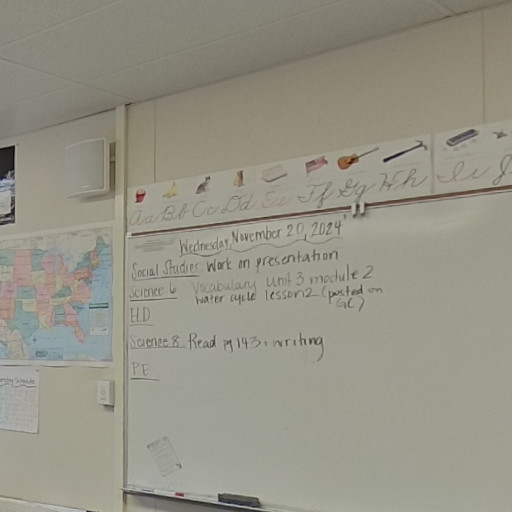 Aa Bb Cc Dd Ee Ff Gg Hh Ii J
Wednesday, November 20, 2024
Social Studies Work on presentation
Science 6 Vocabulary Unit 3 module 2
water cycle lesson 2 (posted on
GC)
H.D
Science 8 Read pg 143 + writing
P.E